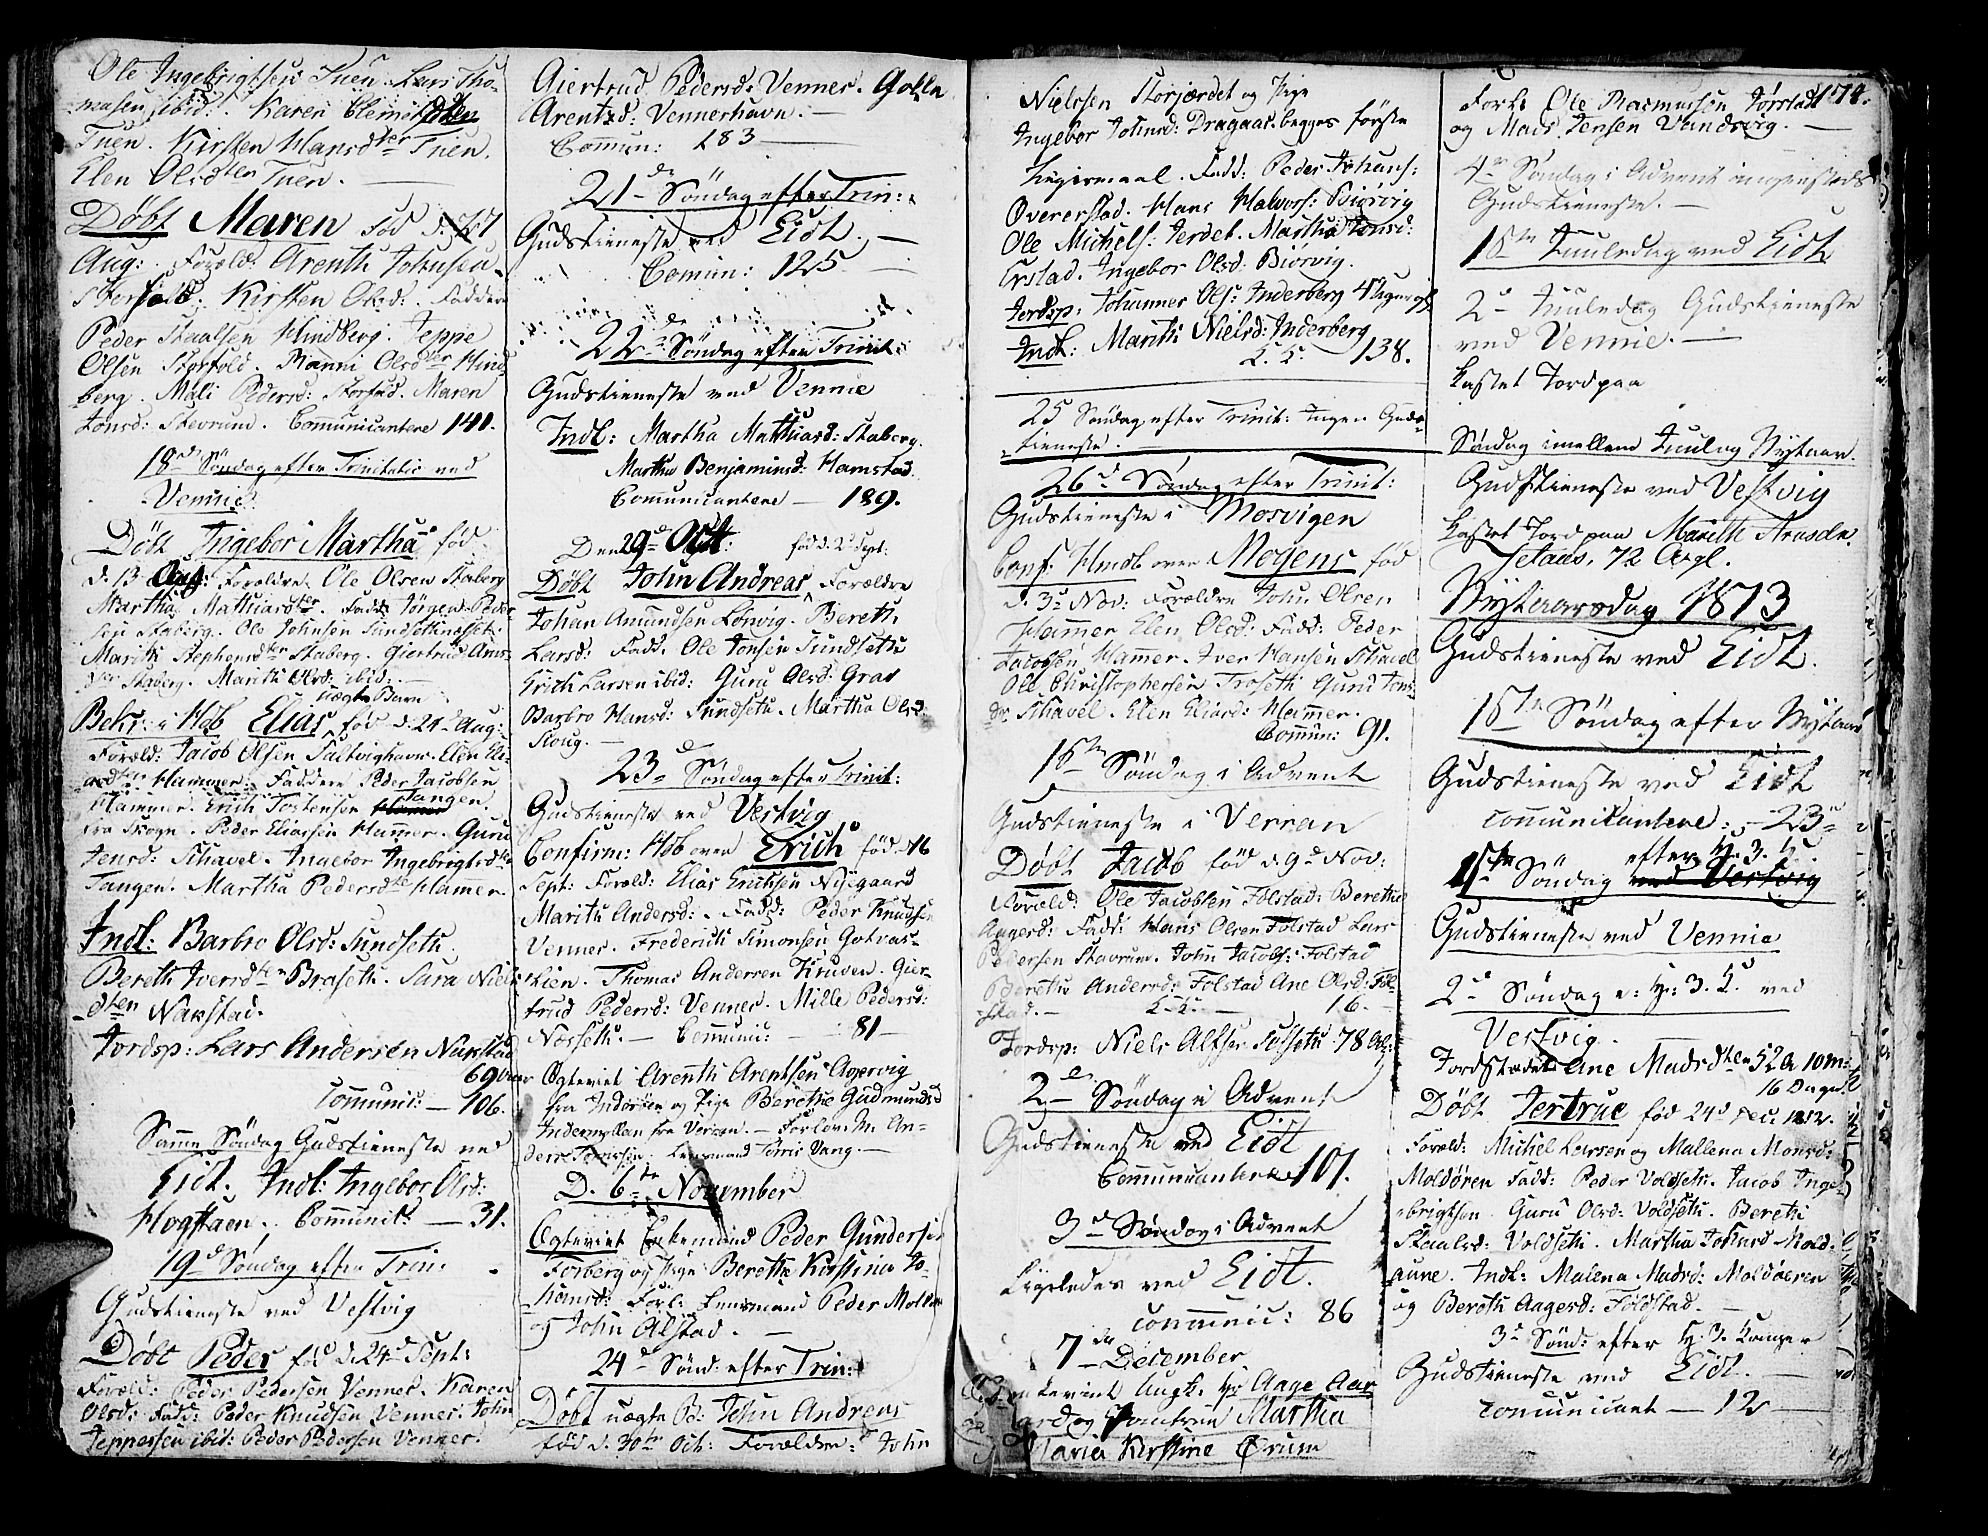 Ole Ingebrigtsen Tuen. Lars Tho-
masen ibid: Karen Clemetsdtten
Tuen. Kirsten Hansdter Tuen.
Elen Olsdter Tuen. —
Døbt Maren fød d: 27
Aug: Foræld: Arenth Johnsen
Storfold. Kirsten Olsd: Faddere
Peder Staalsen Hindberg. Jeppe
Olsen Storfold. Ranni Olsdter Hind-
berg. Mali Pedersd: Maren
Jonsd: Communicantere 141.
18de Søndag efter Trinitatis ved
Vennes.
Døbt Ingebor Martha fød
d. 13 Aug: Forældre Ole Olsen Staberg
Martha Mathiasdter. Fadd: Jørgen Peder-
sen Staberg. Ole Johnsen
Marith Stephensdter Staberg. Giertrud Ams-
dter Staberg. Marith Olsd: ibid: —
uægte Barn
Bekr: i Hdb Elias fød d. 24de Aug:
Foræld: Jacob Olsen Saltvighavn. Elen Eli-
asdter Hammer. Faddere Peder Jacobsen
Hammer. Erich Tostensen Tangen.
fra Skogn. Peder Eliassen Hamer. Guru
Jensd: Schavel. Ingebor Ingebrigtsdter
Tangen. Martha Pedersdter Hamer.
Indl: Barbro Olsd: Sundseth.
Bereth Iversdter Braseth. Sara Niels-
dtter Naustad.
Jordsp: Lars Andersen Naustad
69 Aar
Communic: — 106.
Samme Søndag Gudstieneste ved
Eidt. Indl: Ingebor Olsd:
Communic: — 31.
19de Søndag efter Trin:
Gudstieneste ved Vestvig
Døbt Peder fød d. 24de Sept:
Foræld: Peder Pedersen Vennes. Karen
Olsd: Fadd: Peder Knudsen Vennes. John
Jeppessen ibid: Peder Pedersen Vennes.
Giertrud Pedersd: Vennes. Golla
Arentzd: Venneshavn. —
Commun: 183 —
21de Søndag efter Trin:
Gudstieneste ved Eidt. —
Comun: 125 —
22de Søndag efter Trinit:
Gudstieneste ved Vennie
Indl: Martha Mathiasd: Staberg.
Martha Benjaminsd: Hamstad.
Comunicantere — 189.
Den 29de Oct: fød d. 2de Sept:
Døbt John Andreas Forældre
Johan Amundsen Lønvig. Bereth
Larsd: Fadd. Ole Jonsen Sundseth
Erich Larsen ibid: Guru Olsd: Grav
Barbro Hansd: Sundseth. Martha Olsd:
Skoug. —
23de Søndag efter Trinit:
Gudstieneste ved Vestvig
Confirm: Hdb over Erich fød d. 16
Sept: Foræld: Elias Erichsen Nøjegaard
Marith Andersd: Fadd: Peder Knudsen
Vennes. Frederich Simonsen Gotvas-
lien. Thomas Andersen Kruven. Gier-
trud Pedersd: Vennes. Mille Pedersd:
Næsseth. — Communic: — 81 —
Ægteviet Arenth Arentsen Aagervig
fra Inderøen og Pige Berethe Gudmundsd
fra Verran. — Forlover An-
ders Lensmand Tørris Vang. —
D. 6te November
Ægteviet Enkemand Peder Gundersen
Forberg og Pige Beretha Kirstina Jo-
hansd: Forl: Lensmand Peder Moller
og John Alstad. —
24de Sønd: efter Trin:
Døbt uægte B: John Andreas
fød d. 30te Oct: Forældre: John
Nielssen Storjordet og Pige
Ingebor Johnsd: Dragaas begges første
Leiermaal. Fadd: Peder Johans:
Overerstad. Hans Halvors: Biørvig
Ole Michels: Jerdet. Martha Jonsd:
Erstad. Ingebor Olsd: Biørvig.
Jordsp: Johannes Ols: Inderberg
Indl: Marith Nielsd: Inderberg
138.
25 Søndag efter Trinit: Ingen Guds-
tieneste. —
26de Søndag efter Trinit:
Gudstieneste i Mosvigen
Conf: Hmdb over Mogens fød
d. 3de Nov: Forældre John Olsen
Hammer Elen Olsd: Fadd: Peder
Jacobsen Hammer. Iver Hansen Schavel
Ole Christophersen Troseth Guru Jons-
dr Schavel. Elen Eliasd: Hammer.
Commun: 91.
1ste Søndag i Advent
Gudstieneste i Verran
Døbt Jacob fød d. 9de Nov:
Foræld: Ole Jacobsen Folstad. Berethe
Aagesd: Fadd: Hans Olsen Folstad Lars
Pedersen Stavrum. John Jacobs: Folstad
Berethe Andersd: Folstad Ane Olsd: Fol-
stad. — 16. —
Jordsp: Niels Alfsen 78 Aar:
2den Søndag i Advent
Gudstieneste ved Eidt
Communicantere 101.
3de Søndag i Advent
Ligeledes ved Eidt.
communic: 86
7de December
Hr Aage Aar
og Martha
Maria Kirstine Ørum
174.
Forl: Ole Rasmussen Jørstad
og Mads Jensen Vandvig. —
4de Søndag i Advent ingensteds
Gudstieneste. —
1ste Juuledag ved Eidt
2de Juuledag Gudstieneste
ved Vennie. —
Kastet Jord paa
Søndag imellem Juul og Nytaar.
Gudstieneste ved Vestvig
Kastet Jord paa Marith Arnsdr.
Setaas, 72 Aar gl.
Nytaarsdag 1813
Gudstieneste ved Eidt.
1ste Søndag efter Nytaar
Gudstieneste ved Eidt
communikantere: — 23
1ste Søndag efter H. 3. K.
Gudstieneste ved Vennie
2de Søndag e: H: 3. K. ved
Vestvig.
Jordfæstet Ane Madsdter 52 A 10 M:
16 Dage
Døbt Jertrue fød 24de Dec: 1812.
Foræld: Michel Larsen og Mallena Monsd:
Moldøren Fadd: Peder Voldseth. Jacob Inge-
brigtsen. Guru Olsd: Voldseth. Bereth
Staalsd: Voldseth. Martha Johnsd Mold-
aune. Indl: Malena Madsd: Moldøeren
og Bereth Aagesd: Foldstad. —
3de Sønd: efter H. 3. Konger
Gudstieneste ved Eidt. —
comunicant — 12 —